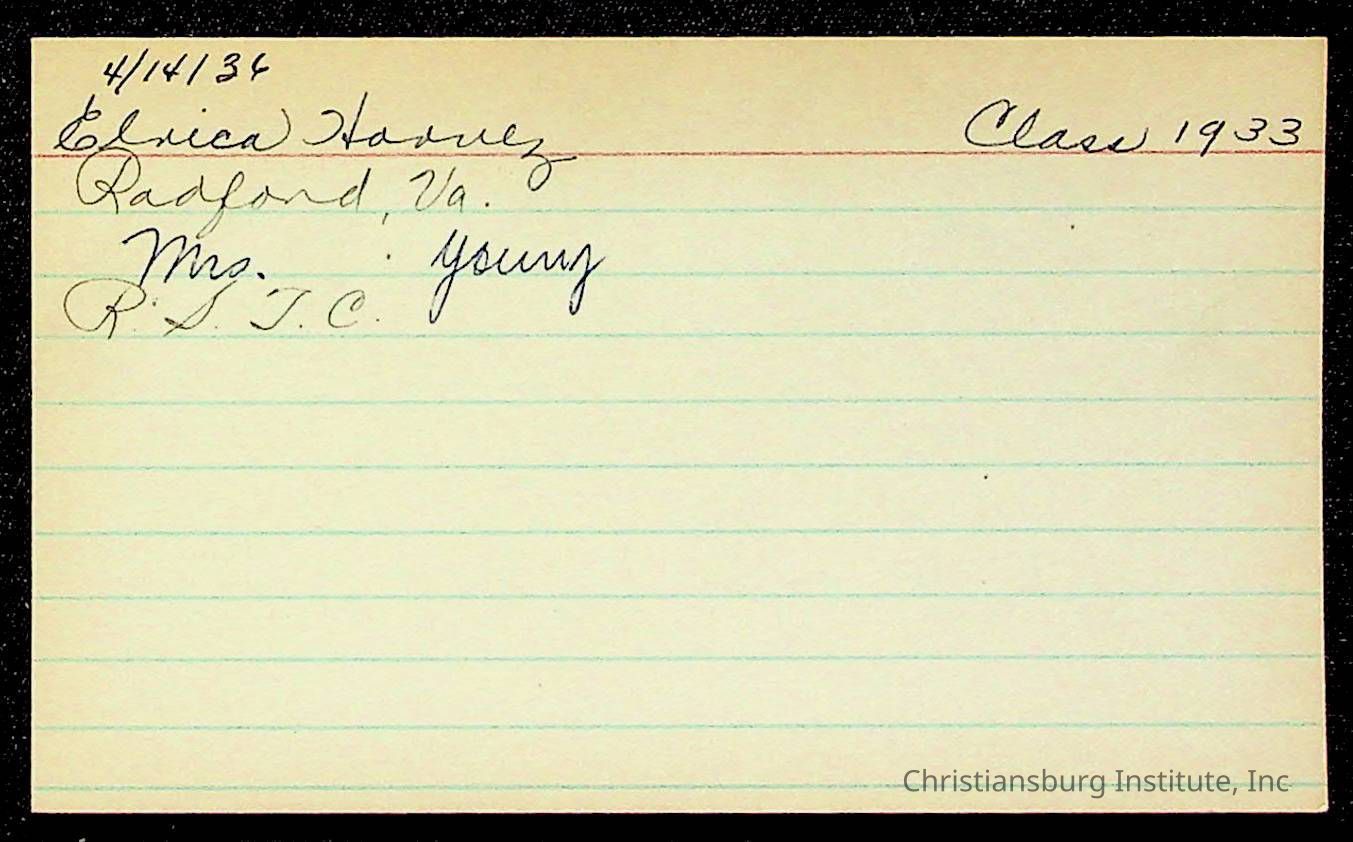 4/14/36
Elrica Class 1933
Radford, Va.
Mrs. Young
R. S. T. C.
Christiansburg Institute, Inc